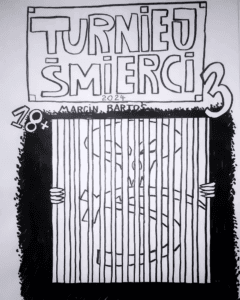 TURNIEJ
ŚMIERCI 3
2024
MARCIN BARTOŚ
18+